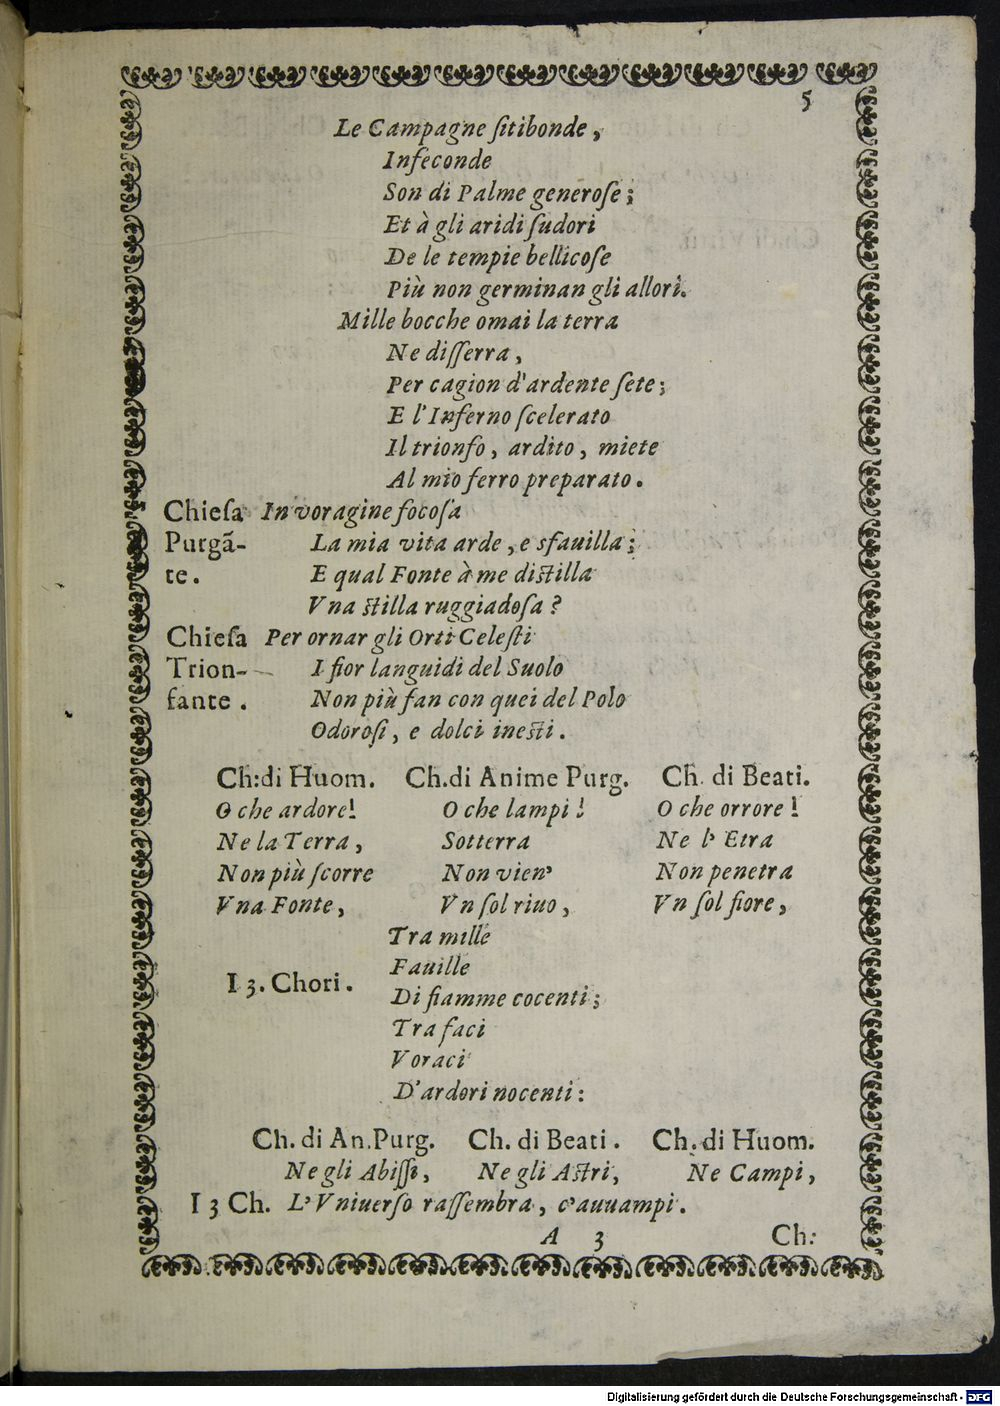 5
Le Campagne ſitibonde,
Infeconde
Son di Palme generoſe;
Et à gli aridi ſudori
De le tempie bellicoſe
Più non germinan gli allori.
Mille bocche omai la terra
Ne diſſerra,
Per cagion d'ardente ſete;
E l'Inferno ſcelerato
Il trionfo, ardito, miete
Al mio ferro preparato.
Chieſa In voragine focoſa
Purgã- La mia vita arde, e sfauilla;
te. E qual Fonte à me diſtilla
Vna ſtilla ruggiadoſa?
Chieſa Per ornar gli Orti Celeſti
Trion- I fior languidi del Suolo
fante. Non più fan con quei del Polo
Odoroſi, e dolci ineſti.
Ch:di Huom. Ch.di Anime Purg. Ch. di Beati.
O che ardore! O che lampi! O che orrore!
Ne la Terra, Sotterra Ne l'Etra
Non più ſcorre Non vien' Non penetra
Vna Fonte, Vn ſol riuo, Vn ſol fiore,
Tra mille
Fauille
I 3. Chori. Di fiamme cocenti;
Tra faci
Voraci
D'ardori nocenti:
Ch. di An.Purg. Ch. di Beati. Ch. di Huom.
Ne gli Abiſſi, Ne gli Aſtri, Ne Campi,
I 3 Ch. L'Vniuerſo raſſembra, c'auuampi.
A 3 Ch:
Digitalisierung gefördert durch die Deutsche Forschungsgemeinschaft - DFG